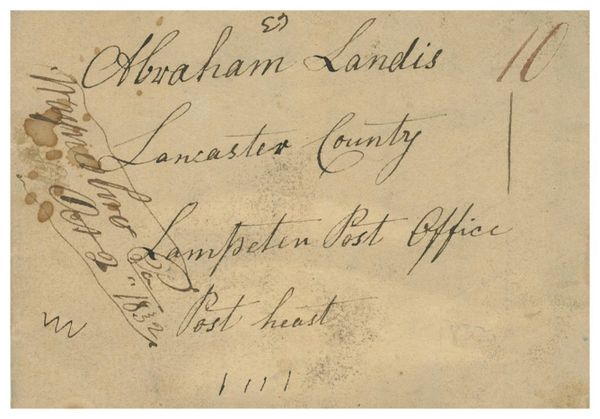 Abraham Landis
10
Lancaster County
Lampeter Post Office
Post heast
Oct 2
1832